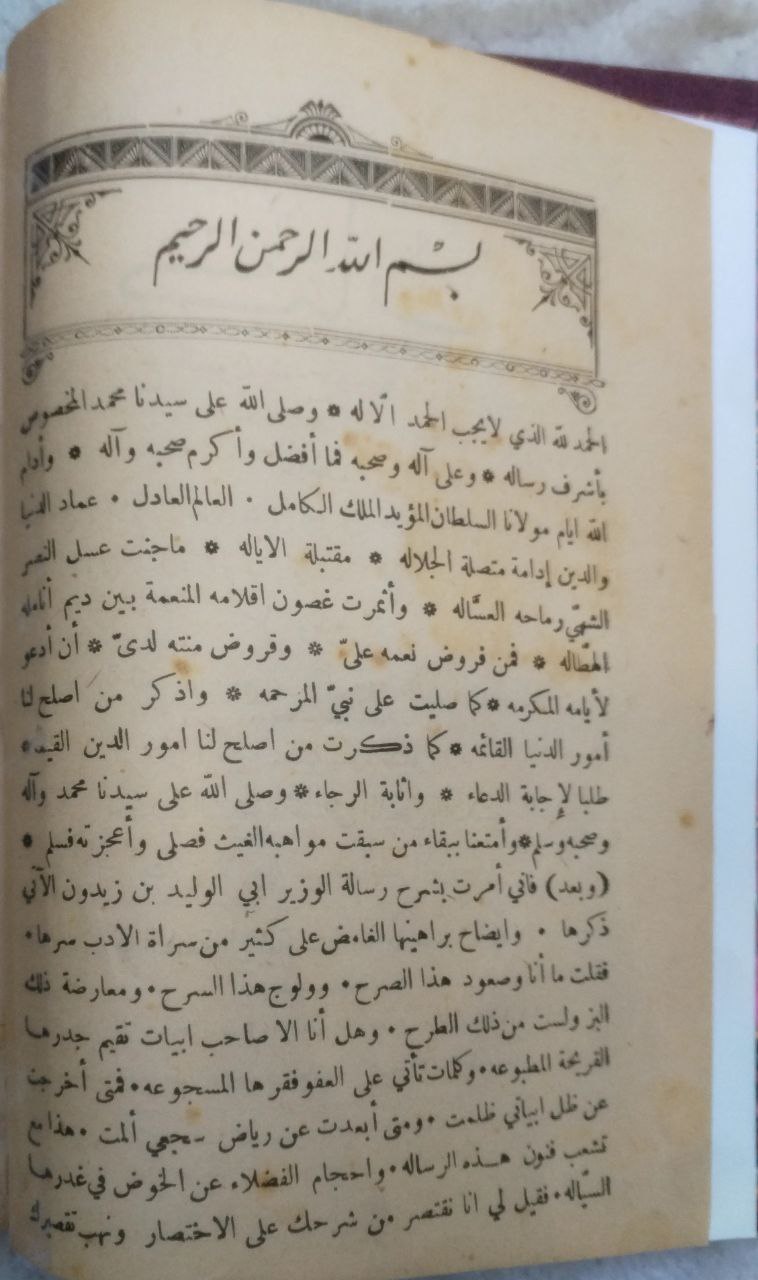 بسم الله الرحمن الرحيم
الحمد لله الذي لايجب الحمد الّا له * وصلى الله على سيدنا محمد المخصوص
بأشرف رساله * وعلى آله وصحبه فما أفضل وأكرم صحبه وآله * وأدام
الله ايام مولانا السلطان المؤيد الملك الكامل · العالم العادل · عماد الدنيا
والدين إدامة متصلة الجلاله * مقتبلة الاياله * ماجنت عسل النصر
الشهيّ رماحه العسّاله * وأثمرت غصون اقلامه المنعمة بين ديم أنامله
الهطّاله * فمن فروض نعمه عليّ * وقروض منته لديّ * أن أدعو
لأيامه المكرمه * كما صليت على نبيّ المرحمه * واذكر من اصلح لنا
أمور الدنيا القائمه * كما ذكرت من اصلح لنا امور الدين القيمه *
طلبا لإجابة الدعاء * واثابة الرجاء * وصلى الله على سيدنا محمد وآله
وصحبه وسلم * وأمتعنا ببقاء من سبقت مواهبه الغيث فصلى وأعجزته فسلم *
(وبعد) فاني أمرت بشرح رسالة الوزير ابي الوليد بن زيدون الآتي
ذكرها · وايضاح براهينها الغامض على كثير من سراة الادب سرها ·
فقلت ما أنا وصعود هذا الصرح · وولوج هذا السرح · ومعارضة ذلك
البز ولست من ذلك الطرح · وهل أنا الا صاحب ابيات تقيم جدرها
القريحة المطبوعه · وكلمات تأتي على العفو فقرها المسجوعه · فمتى أخرجت
عن ظل ابياتي ظلمت · ومتى أبعدت عن رياض سجعي ألمت · هذا مع
تشعب فنون هذه الرساله · واحجام الفضلاء عن الخوض في غدرها
السيّاله · فقيل لي انا نقتصر من شرحك على الاختصار ونهب تقصيرك